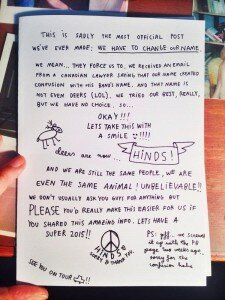 THIS IS SADLY THE MOST OFFICIAL POST
WE'VE EVER MADE: WE HAVE TO CHANGE OUR NAME
WE MEAN... THEY FORCE US TO. WE RECEIVED AN EMAIL
FROM A CANADIAN LAWYER SAYING THAT OUR NAME CREATED
CONFUSION WITH HIS BAND'S NAME, AND THAT NAME IS
NOT EVEN DEERS (LOL). WE TRIED OUR BEST, REALLY,
BUT WE HAVE NO CHOICE. SO...
OKAY!!!
LETS TAKE THIS WITH
A SMILE !!!!
deers are now... HINDS!
AND WE ARE STILL THE SAME PEOPLE, WE ARE
EVEN THE SAME ANIMAL! UNBELIEVABLE!!
WE DON'T USUALLY ASK YOU GUYS FOR ANYTHING BUT
PLEASE YOU'D REALLY MAKE THIS EASIER FOR US IF
YOU SHARED THIS AMAZING INFO. LETS HAVE A
SUPER 2015!!
HINDS
SORRY & THANK YOU
PS: uff.. we screwed
it up with the FB
page two weeks ago,
sorry for the
confusion haha
SEE YOU ON TOUR !!